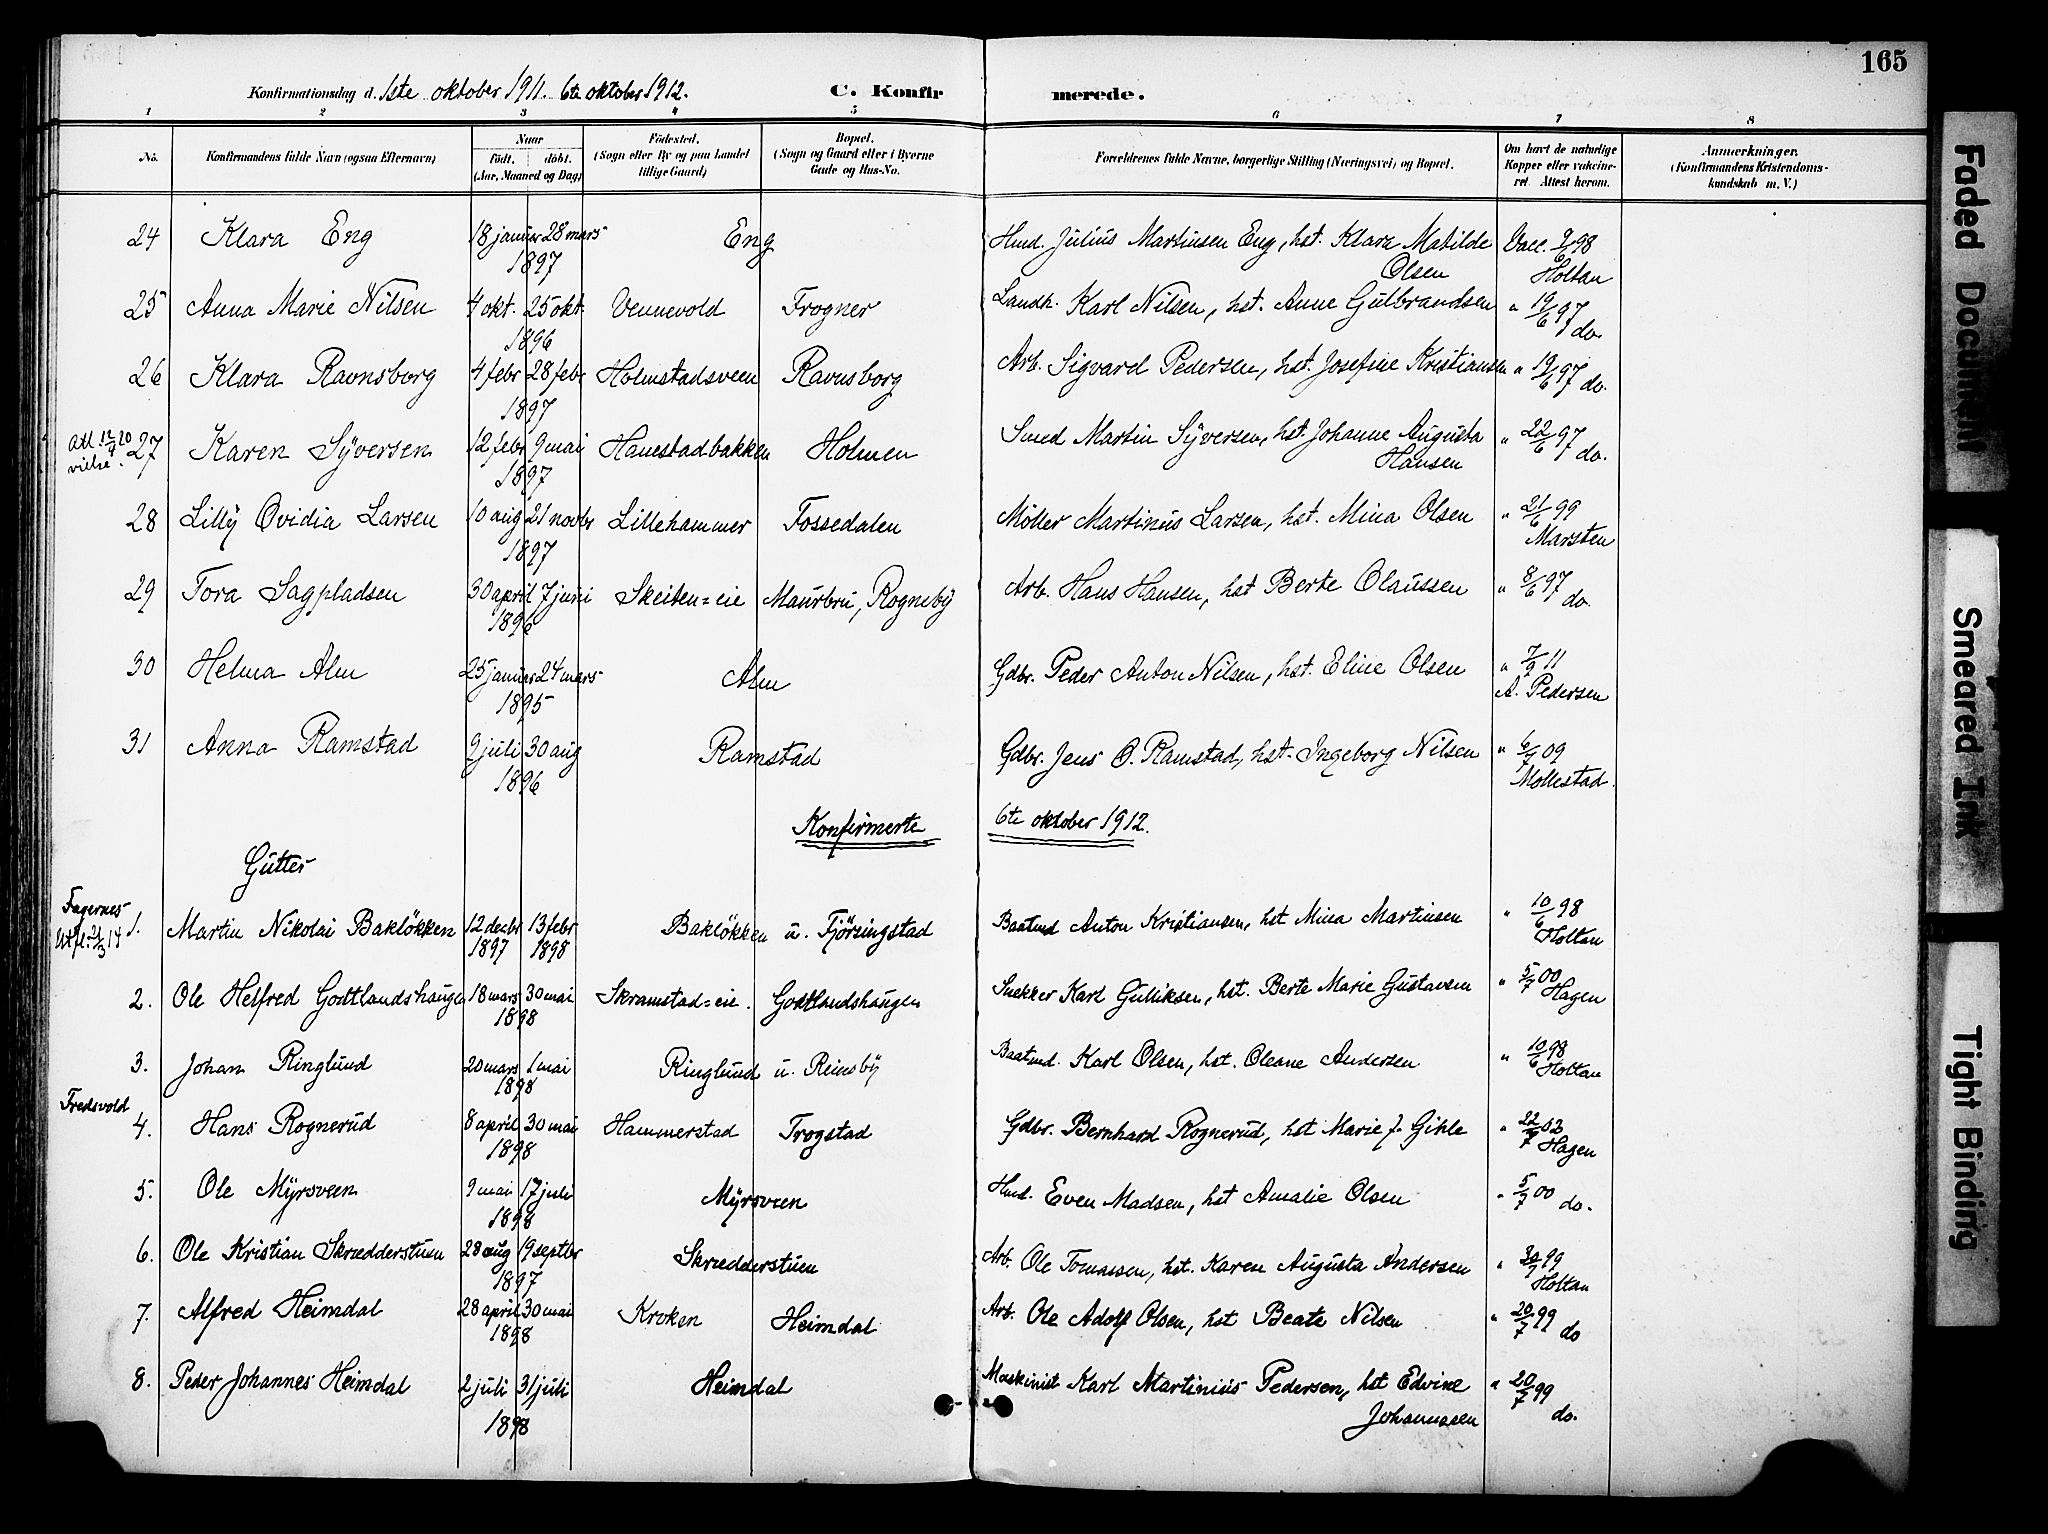 165
Konfirmationsdag d. 1ste oktober 1911. 6te oktober 1912. C. Konfirmerede.
1 2 3 4 5 6 7 8
No. Konfirmandens fulde Navn (ogsaa Efternavn) Naar født. døbt. (Aar, Maaned og Dag) Fødested. (Sogn eller By og paa Landet tillige Gaard) Bopæl. (Sogn og Gaard eller i Byerne Gade og Hus-No. Forældrenes fulde Navne, borgerlige Stilling (Næringsvei) og Bopæl. Om havt de naturlige Kopper eller vakcineret. Attest herom. Anmærkninger. (Konfirmandens Kristendomskundskab m. V.)
24 Klara Eng 18 januar 28 mars 1897 Eng Husd. Julius Martinsen Eng, hst. Klara Matilde Olsen Vacc. 9/6 98 Holtan
25 Anna Marie Nilsen 4 okt. 25 okt. 1896 Vennevold Frogner Landh. Karl Nilsen, hst. Anne Gulbrandsen " 19/6 97 do.
26 Klara Ravnsborg 4 febr 28 febr 1897 Holmstadsveen Ravnsborg Arb. Sigvard Pedersen, hst. Josefine Kristiansen " 19/6 97 do.
Att. 12/4 20 vielse. 27 Karen Syversen 12 febr 9 mai 1897 Hanestadbakken Holmen Smed Martin Syversen, hst. Johanne Augusta Hansen " 22/6 97 do.
28 Lilly Ovidia Larsen 10 aug 21 novbr 1897 Lillehammer Fossedalen Møller Martinus Larsen, hst. Mina Olsen " 21/6 99 Marsten
29 Tora Sagpladsen 30 april 7 juni 1896 Skeiten=eie Maurbru, Rogneby Arb. Hans Hansen, hst Berte Olaussen " 8/6 97 do.
30 Helma Alm 25 januar 24 mars 1895 Alm Gdbr. Peder Anton Nilsen, hst. Eline Olsen " 7/9 11 A. Pedersen
31 Anna Ramstad 9 juli 30 aug 1896 Ramstad Gdbr. Jens O. Ramstad, hst. Ingeborg Nilsen " 6/7 09 Møllestad.
Konfirmerte 6te oktober 1912.
Gutter
Fagernes Utfl. 21/3 14 1. Martin Nikolai Bakløkken 12 decbr 1897 13 febr 1898 Bakløkken u. Fjørsingstad Baatmd Anton Kristiansen, hst Mina Martinsen " 10/6 98 Holtan
2. Ole Helfred Godtlandshaugen 18 mars 30 mai 1898 Skramstad=eie. Godtlandshaugen Snekker Karl Gulliksen, hst. Berte Marie Gustavsen " 5/7 00 Hagen
3. Johan Ringlund 20 mars 1 mai 1898 Ringlund u. Rinsby Baatmd. Karl Olsen, hst. Oleane Andersen " 10/6 98 Holtan
Fredsvold 4. Hans Rognerud 8 april 30 mai 1898 Hammerstad Trogstad Gdbr. Bernhard Rognerud, hst Marie J. Gihle " 22/7 03 Hagen
5. Ole Myrsveen 9 mai 17 juli 1898 Myrsveen Husd. Even Madsen, hst Amalie Olsen " 5/7 00 do.
6. Ole Kristian Skrædderstuen 28 aug 19 septbr 1897 Skrædderstuen Arb. Ole Tomassen, hst. Karen Augusta Andersen " 20/7 99 Holtan
7. Alfred Heimdal 28 april 30 mai 1898 Kroken Heimdal Arb. Ole Adolf Olsen, hst Beate Nilsen " 20/7 99 do
8. Peder Johannes Heimdal 2 juli 31 juli 1898 Heimdal Maskinist Karl Martinius Pedersen, hst Edvine Johannssen " 20/7 99 do.
Faded Document
Smeared Ink
Tight Binding